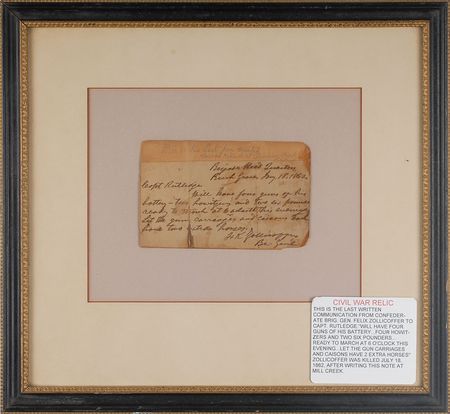 Brigade Head Quarters
Beech Grove Jany 18. 1862.
Capt Rutledge
Will have four guns of his
battery - two howitzers and two six pounders
ready to march at 6 o'clock this evening
Let the gun carriages and caisons each
have two extra horses.
F. K. Zollicoffer
Br. Genl.
CIVIL WAR RELIC
THIS IS THE LAST WRITTEN
COMMUNICATION FROM CONFEDER-
ATE BRIG. GEN. FELIX ZOLLICOFFER TO
CAPT. RUTLEDGE "WILL HAVE FOUR
GUNS OF HIS BATTERY...FOUR HOWIT-
ZERS AND TWO SIX POUNDERS...
READY TO MARCH AT 6 O'CLOCK THIS
EVENING...LET THE GUN CARRIAGES
AND CAISONS HAVE 2 EXTRA HORSES"
ZOLLICOFFER WAS KILLED JULY 18,
1862, AFTER WRITING THIS NOTE AT
MILL CREEK.